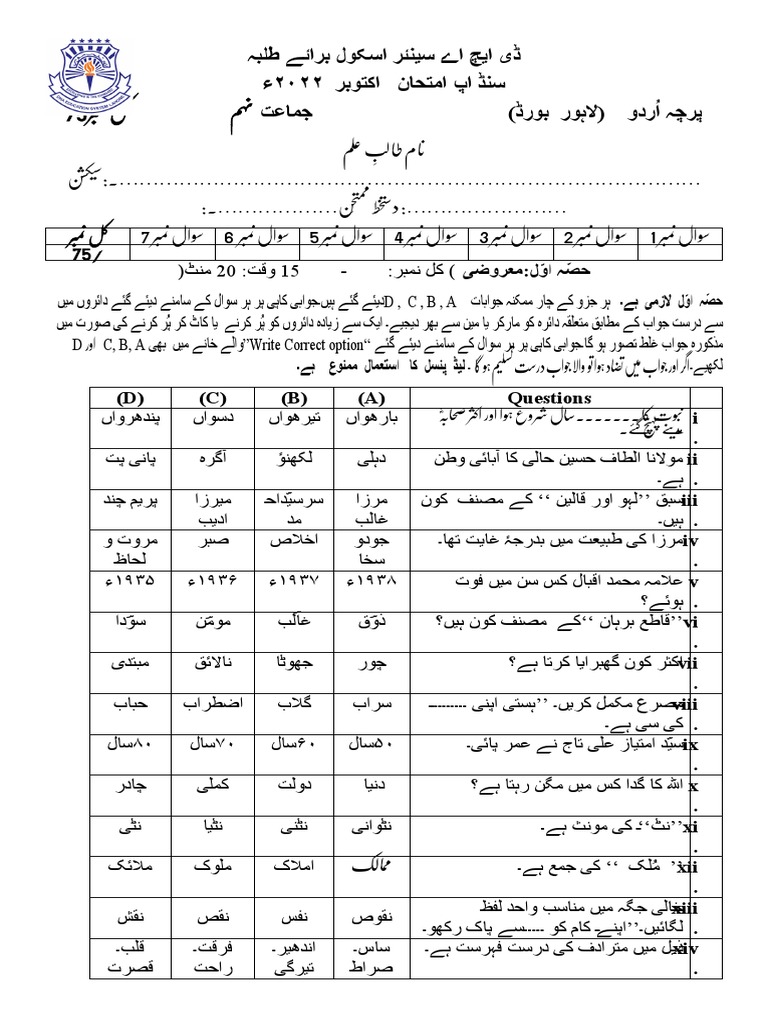 ڈی ایچ اے سینئر اسکول برائے طلبہ
سنڈ اپ امتحان اکتوبر ۲۰۲۲ء
پرچہ اُردو (لاہور بورڈ) جماعت نہم
نام طالبِ علم
سیکشن:۔....................................................................................
........................:دستخط ممتحن..................:۔
سوال نمبر1 سوال نمبر2 سوال نمبر3 سوال نمبر4 سوال نمبر5 سوال نمبر6 سوال نمبر7 کل نمبر
/75
حصّہ اوّل:معروضی ) کل نمبر: - 15 وقت: 20 منٹ(
حصّہ اوّل لازمی ہے۔ ہر جزو کے چار ممکنہ جوابات D , C , B , A دیئے گئے ہیں۔جوابی کاپی پر ہر سوال کے سامنے دیئے گئے دائروں میں
سے درست جواب کے مطابق متعلقہ دائرہ کو مارکر یا مین سے بھر دیجیے۔ ایک سے زیادہ دائروں کو پُر کرنے یا کاٹ کر پُر کرنے کی صورت میں
مذکورہ جواب غلط تصور ہو گا۔جوابی کاپی پر ہر سوال کے سامنے دیئے گئے “Write Correct option” والے خانے میں بھی C, B, A اور D
لکھیے۔اگر اور جواب میں تضاد ہوا تو والا جواب درست تسلیم ہو گا۔ لیڈ پنسل کا استعمال ممنوع ہے۔
Questions (A) (B) (C) (D)
i. نبوت کا۔۔۔۔۔۔۔ سال شروع ہوا اور اکثر صحابہؓ مدینے پہنچ گئے۔ بارھواں تیرھواں دسواں پندھرواں
ii. مولانا الطاف حسین حالی کا آبائی وطن ہے۔ دہلی لکھنؤ آگرہ پانی پت
iii. سبق ’’لہو اور قالین ‘‘ کے مصنف کون ہیں۔ مرزا غالب سرسیّداحمد میرزا ادیب پریم چند
iv. مرزا کی طبیعت میں بدرجۂ غایت تھا۔ جودو سخا اخلاص صبر مروت و لحاظ
v. علامہ محمد اقبال کس سن میں فوت ہوئے؟ ۱۹۳۸ء ۱۹۳۷ء ۱۹۳۶ء ۱۹۳۵ء
vi. ’’قاطع برہان ‘‘کے مصنف کون ہیں؟ ذوؔق غالؔب مومؔن سوؔدا
vii. اکثر کون گھبرایا کرتا ہے؟ چور جھوٹا نالائق مبتدی
viii. مصرع مکمل کریں۔ ’’ہستی اپنی --------- کی سی ہے۔ سراب گلاب اضطراب حباب
ix. سیّد امتیاز علی تاج نے عمر پائی۔ ۵۰سال ۶۰سال ۷۰سال ۸۰سال
x. اللہ کا گدا کس میں مگن رہتا ہے؟ دنیا دولت کملی چادر
xi. ’’نٹ‘‘ـ کی مونث ہے۔ نٹوانی نٹنی نٹیا نٹی
xii. ’ مُلک ‘‘ کی جمع ہے۔ ممالک املاک ملوک ملائک
xiii. خالی جگہ میں مناسب واحد لفظ لگائیں۔’’اپنےـ کام کو -----سے پاک رکھو۔ نقوص نفس نقص نقش
xiv. ذیل میں مترادف کی درست فہرست ہے۔ ساس۔ صراط اندھیر۔ تیرگی فرقت۔ راحت قلب۔ قصرت